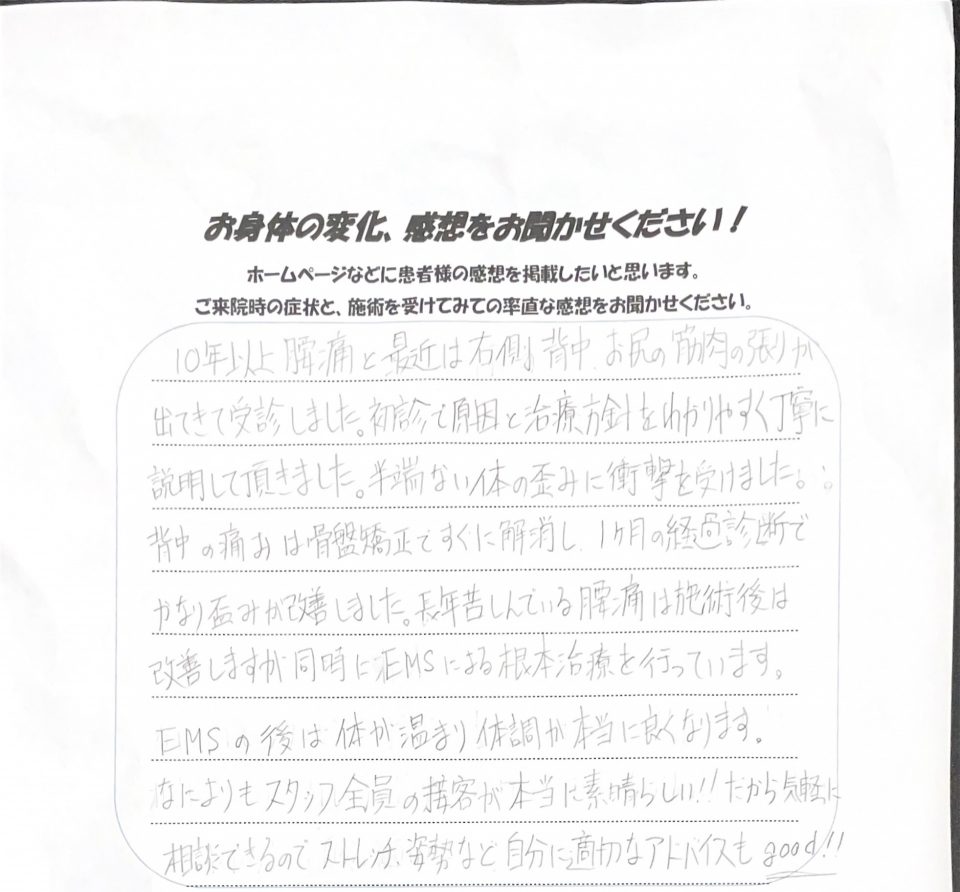 お身体の変化、感想をお聞かせください！
ホームページなどに患者様の感想を掲載したいと思います。
ご来院時の症状と、施術を受けてみての率直な感想をお聞かせください。
10年以上腰痛と最近は右側背中、お尻の筋肉の張りが
出てきて受診しました。初診で原因と治療方針をわかりやすく丁寧に
説明して頂きました。半端ない体の歪みに衝撃を受けました。
背中の痛みは骨盤矯正ですぐに解消し、1ヶ月の経過診断で
かなり歪みが改善しました。長年苦しんでいる腰痛は施術後は
改善しますが同時にEMSによる根本治療を行っています。
EMSの後は体が温まり体調が本当に良くなります。
なによりもスタッフ全員の接客が本当に素晴らしい!!だから気軽に
相談できるのでストレッチ、姿勢など自分に適切なアドバイスもgood!!